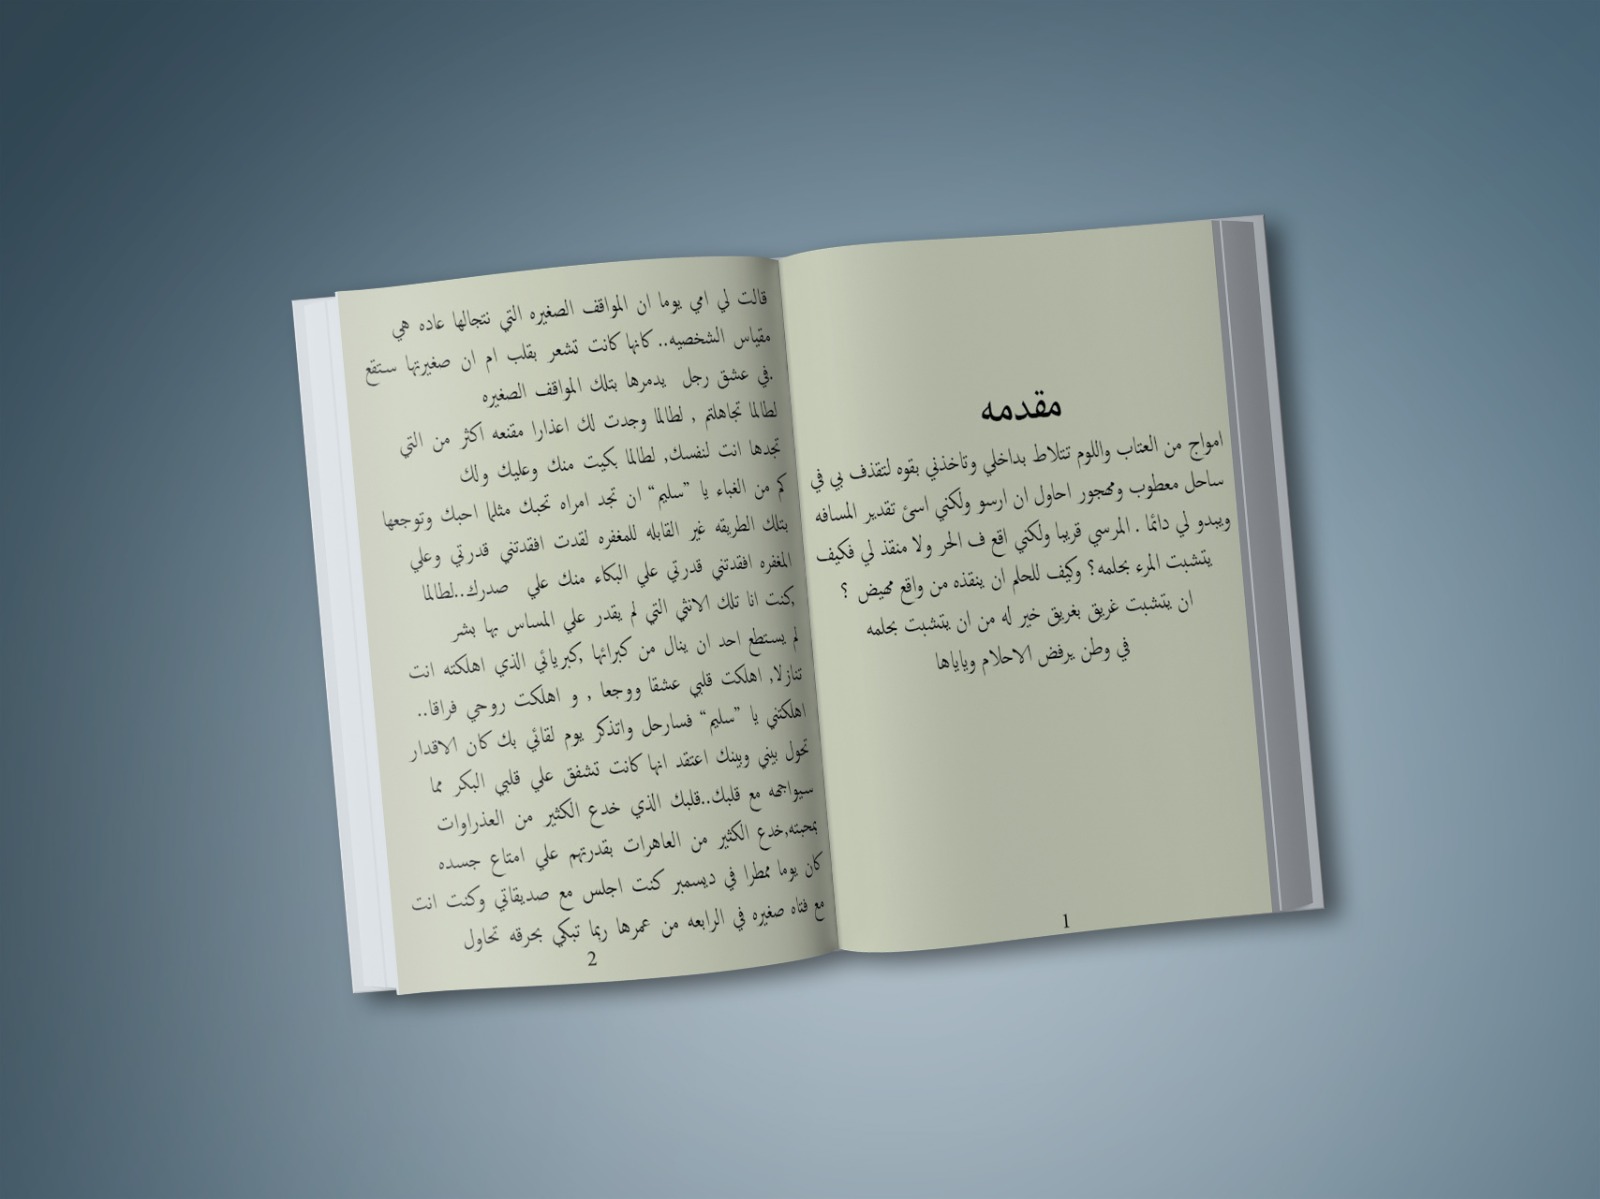 مقدمه
امواج من العتاب واللوم تتلاط بداخلي وتاخذني بقوه لتقذف بي في
ساحل معطوب ومهجور احاول ان ارسو ولكني اسئ تقدير المسافه
ويبدو لي دائما . المرسي قريبا ولكني اقع ف الحر ولا منقذ لي فكيف
يتشبت المرء بحلمه؟ وكيف للحلم ان ينقذه من واقع مهيض ؟
ان يتشبت غريق بغريق خير له من ان يتشبت بحلمه
في وطن يرفض الاحلام وياباها
1
قالت لي امي يوما ان المواقف الصغيره التي نتجالها عاده هي
مقياس الشخصيه.. كانها كانت تشعر بقلب ام ان صغيرتها ستقع
.في عشق رجل يدمرها بتلك المواقف الصغيره
لطالما تجاهلتم , لطالما وجدت لك اعذارا مقنعه اكثر من التي
تجدها انت لنفسك, لطالما بكيت منك وعليك ولك
كم من الغباء يا "سليم" ان تجد امراه تحبك مثلما احبك وتوجعها
بتلك الطريقه غير القابله للمغفره لقدت افقدتني قدرتي وعلي
المغفره افقدتني قدرتي علي البكاء منك علي صدرك..لطالما
,كنت انا تلك الانثي التي لم يقدر علي المساس بها بشر
لم يستطع احد ان ينال من كبرائها ,كبريائي الذي اهلكته انت
تنازلا, اهلكت قلبي عشقا ووجعا , و اهلكت روحي فراقا..
اهلكتني يا "سليم" فسارحل واتذكر يوم لقائي بك كان الاقدار
تحول بيني وبينك اعتقد انها كانت تشفق علي قلبي البكر مما
سيواجهه مع قلبك..قلبك الذي خدع الكثير من العذراوات
بمحبته,خدع الكثير من العاهرات بقدرتهم علي امتاع جسده
كان يوما ممطرا في ديسمبر كنت اجلس مع صديقاتي وكنت انت
مع فتاه صغيره في الرابعه من عمرها ربما تبكي بحرقه تحاول
2